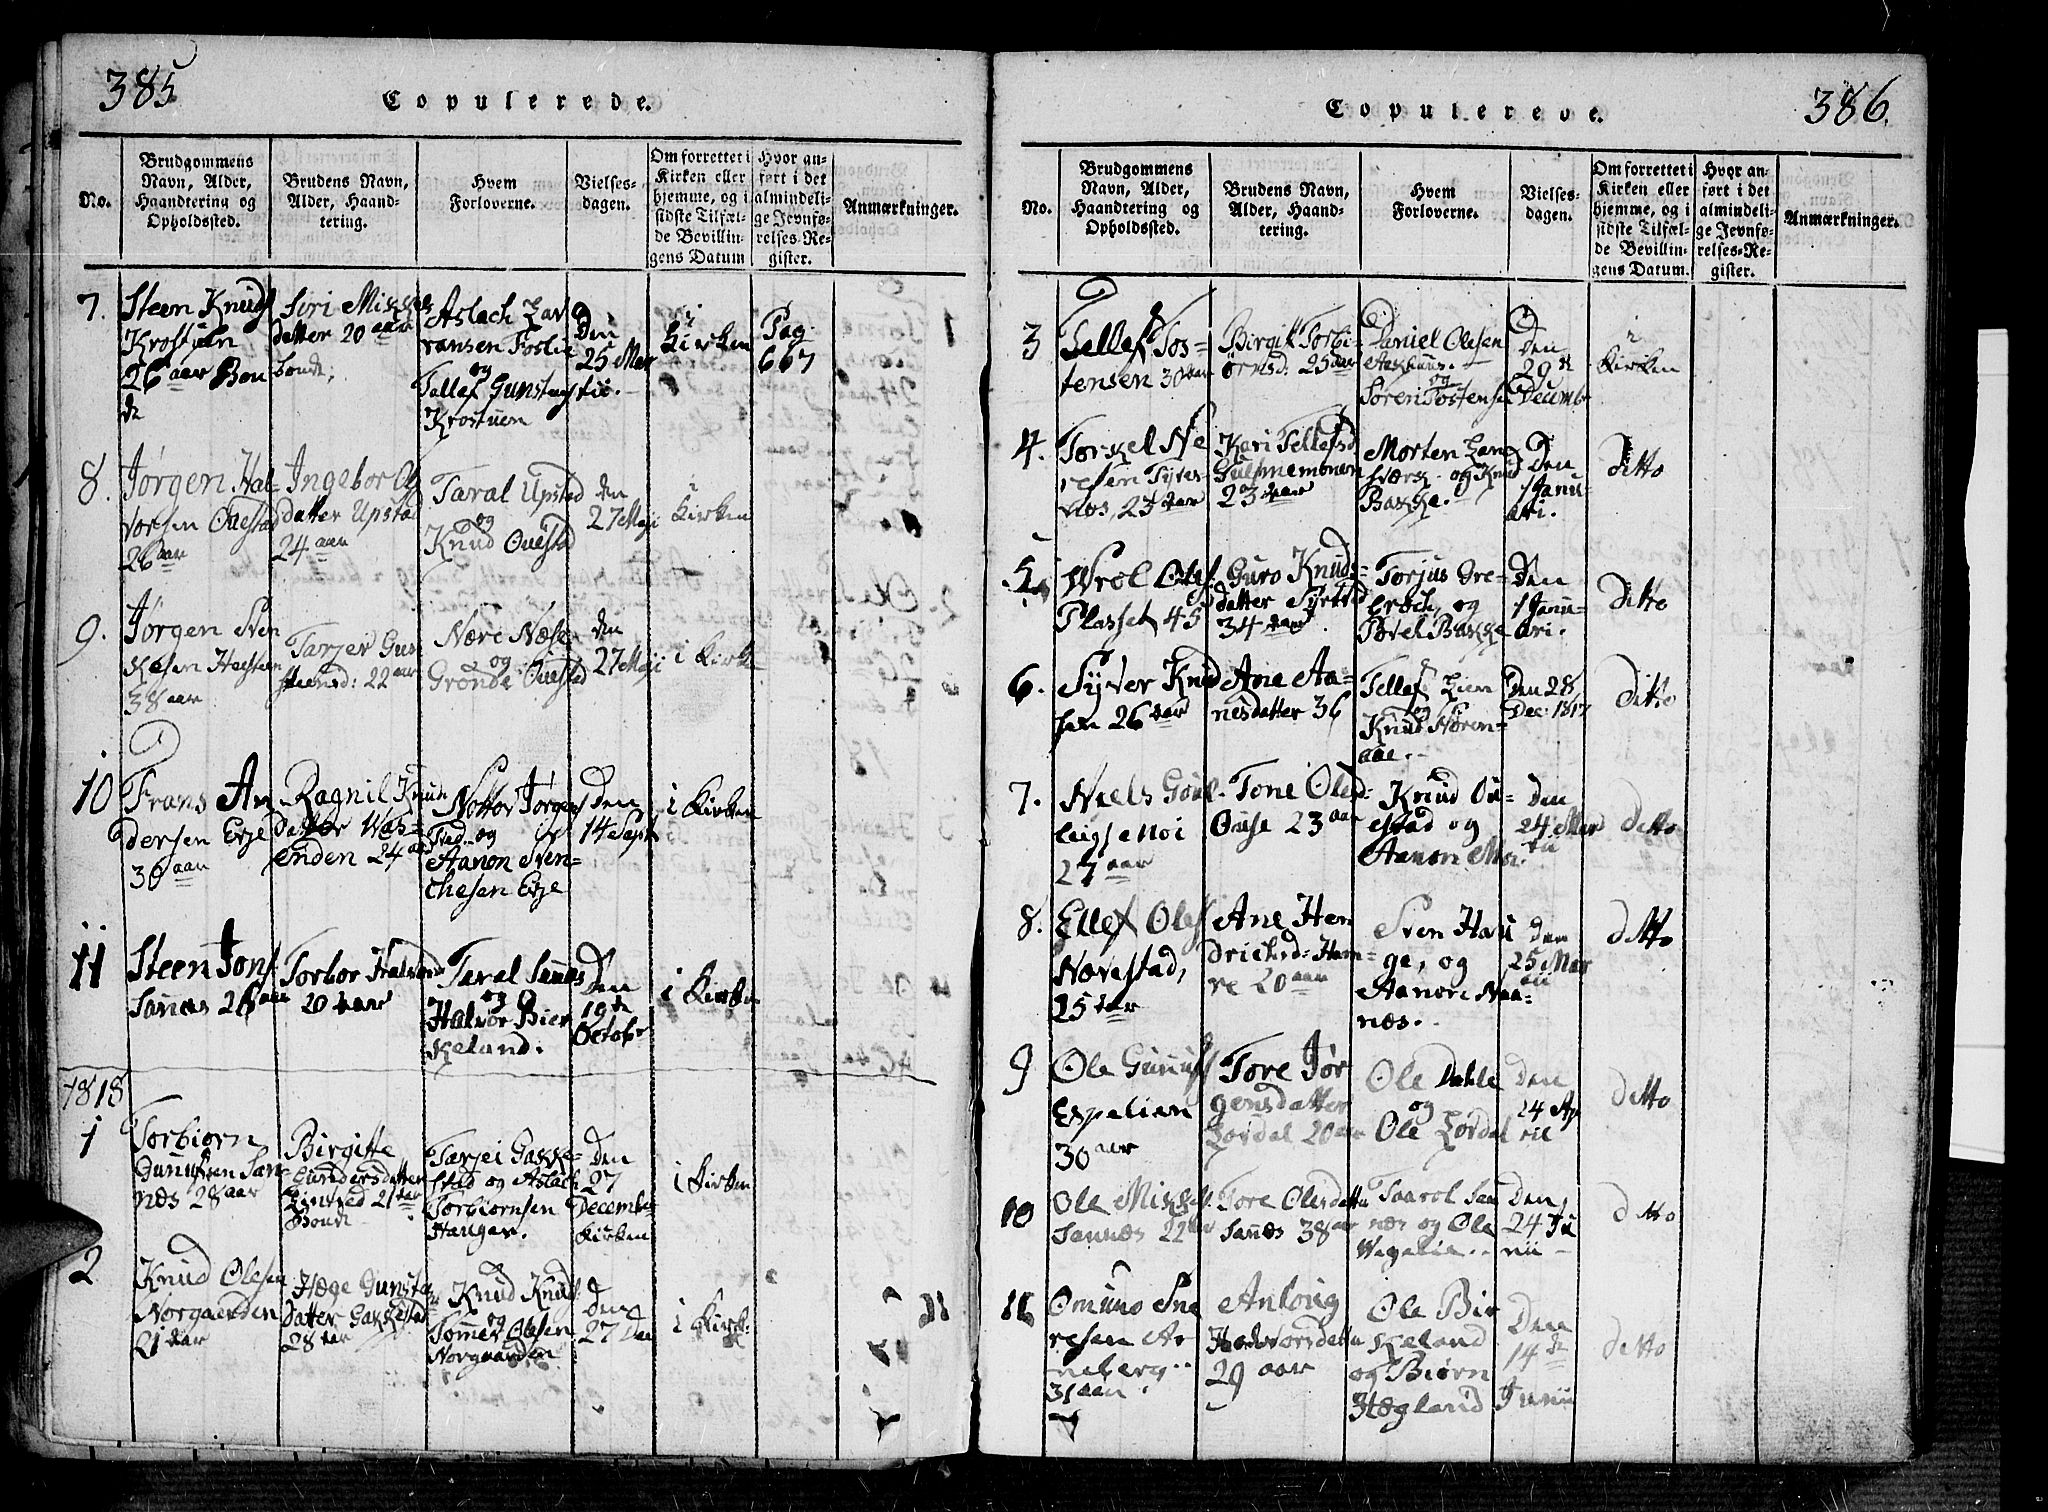 385
Copulerede.
No.
Brudgommens
Navn, Alder,
Haandtering og
Opholdssted.
Brudens Navn,
Alder, Haand-
tering.
Hvem
Forloverne.
Vielses-
dagen.
Om forrettet i
Kirken eller
hjemme, og i
sidste Tilfæl-
de Bevillin-
gens Datum
Hvor an-
ført i det
almindeli-
ge Jevnfø-
relses-Re-
gister.
Anmærkninger.
7.
Steen Knuds
Krostuen
26 aar Bon
de
Sori Mikkels
datter 20 aar
bonde,
Aslach Lar
ransen Foslie
og
Tallef Gunstens
Krostuen
Den
25 Mar
tii.
i
Kirken
Pag.
667
8.
Jørgen Hal-
vorsen Ouestad
26 aar
Ingebor Ols
datter Upstad
24 aar
Taral Upstad
og
Knud Ouestad
den
27 Maji
i
Kirken
9.
Jørgen Sven
38 aar
Tarjer Gun
22 aar
Nære Næse
og
Grønde Ouestad
den
27 Maji
i Kirke
10
Frans An
dersen Evje
30 aar
Ragnil Knuds
datter Was-
enden 24 aar
Nottor Jørgens
og
Aanon Sven-
chesen Evje
Den
14 Sept
i Kirken
11
Steen Jons
Sanæs 26 aar
Torbor Halvors
20 aar
Taral Sanæs
og
Halvor Bier
keland.
Den
19de
Octobr
i Kirken
1818
1
Torbiorn
Gunulfsen San-
næs 28 aar
Birgitte
Gundersdatter
21 aar
Bonde
Tarjei Gakke-
stad og Aslach
Torbiornsen
Haugen.
Den
27
December
Kirken
i Kirken
2
Knud Olesen
Norgaarden
21 aar
Hæge Gunsta
Datter Gakkestad
28 aar
Knud Knuds
og
Tømer Olesen
Norgaarden
den
27 Dec
i Kirk-
386.
Copulerede.
No.
Brudgommens
Navn, Alder,
Haandtering og
Opholdssted.
Brudens Navn,
Alder, Haand-
tering.
Hvem
Forloverne.
Vielses-
dagen.
Om forrettet i
Kirken eller
hjemme, og i
sidste Tilfæl-
de Bevillin-
gens Datum.
Hvor an-
ført i det
almindeli-
ge Jevnfø-
relses-Re-
gister.
Anmærkninger.
3
Tellef Tos-
tensen 30 aar
Birgit Torbi-
ørnsd: 25 aar
Daniel Olesen
og
Søren Tostense
Den
29de
Decembr
i
Kirken
4.
Torkel Ne
resen Tyves
nos, 23 aar
Kari Tellefsd
23 aar
Morten Lan
og Knud
Bakke.
Den
1 Janu-
ari.
ditto
5
Wrol Olsf.
Plasset 45
Guro Knuds-
datter Syrtved
34 aar
Torjus Gre-
og
Povel Bakke
Den
1 Janu-
ari.
ditto
6.
Syver Knud
sen 26 aar
Ane Aa-
nesdatter 36
Tellef Lien
og
Knud Høren-
aae.
Den 28
Dec: 1817
ditto
7.
Niels Goul-
27 aar
Tone Olesd:
Ouse 23 aar
Knud Ou-
estad og
Aanon Moi.
den
24 Mar
tii
ditto
8.
Ellef Oles
Navestad,
25 aar
Ane Hen
drichsd: Ham-
re 20 aar
Sven Hau
ge, og
Aanon Naa-
næs.
den
25 Mar
tii
ditto
9
Ole Gunufs
Espelien
30 aar
Tore Jør
gensdatter
Lordal 20 aar
Ole Dahle
og
Ole Lordal
den
24 Ap
ril
ditto
10
Ole Mikkels
Sannæs 22 aar
Tore Olesdatter
Sanæs 38 aar
Taarol San
næs og Ole
Wegelie.
den
24 Ju
nii
ditto
11
Omund Sne
resen Ar
neberg
31 aar
Anloug
Halvorsdatter
29 aar
Ole Bir
keland
og Biørn
Hægland
Den
14de
Junii
ditto